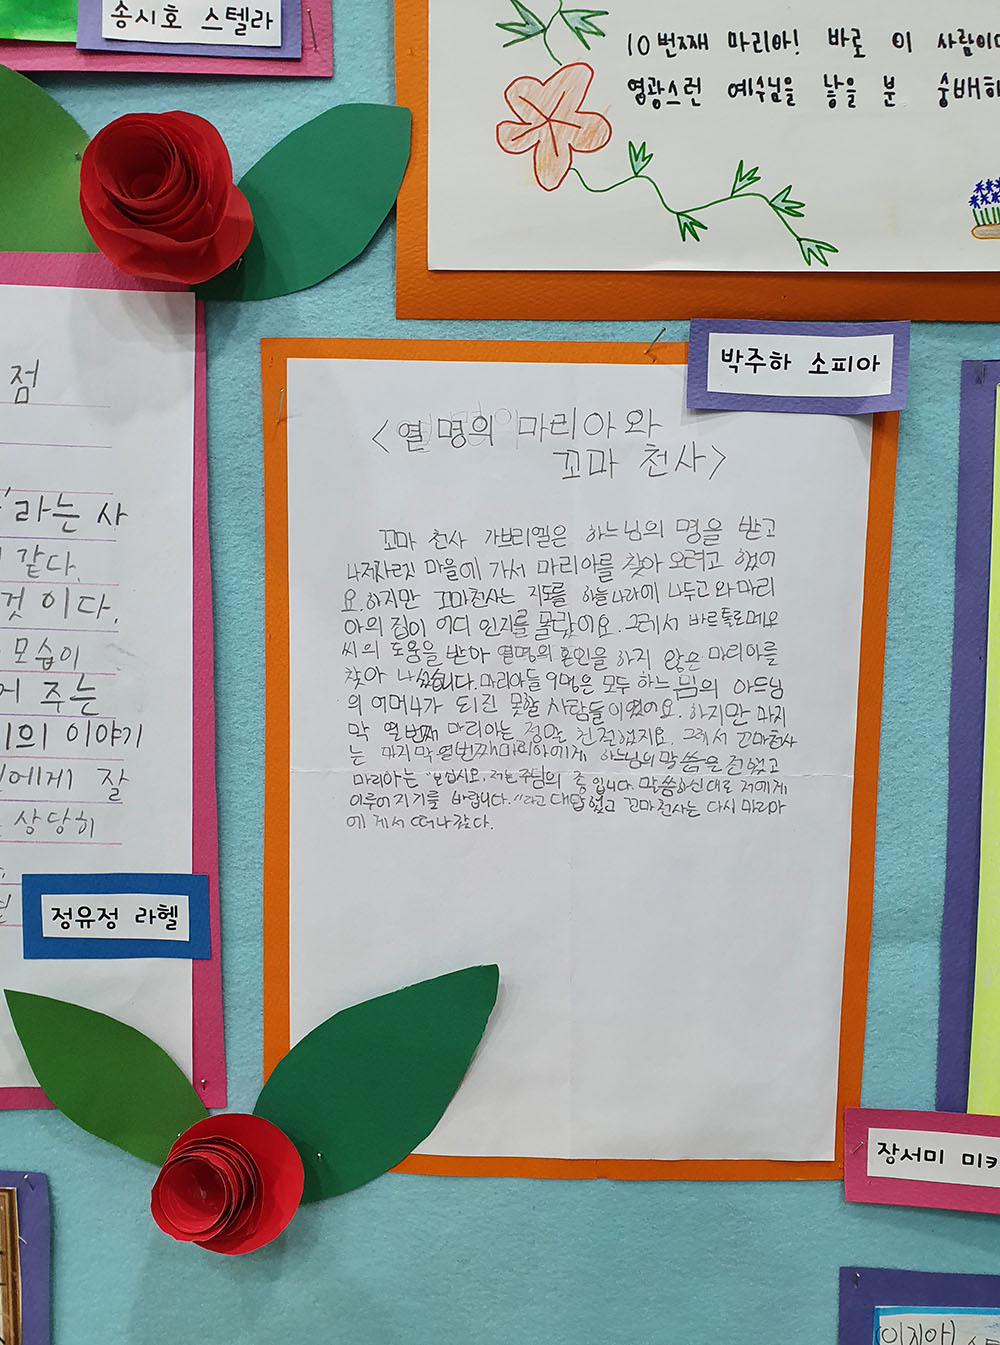 송시호 스텔라
10번째 마리아! 바로 이 사람이다
영광스런 예수님을 낳을 분 숭배하
박주하 소피아
<열 명의 마리아와
꼬마 천사>
꼬마 천사 가브리엘은 하느님의 명을 받고
나저사렛 마을에 가서 마리아를 찾아 오려고 했어
요. 하지만 꼬마천사는 지도를 하늘나라에 나두고 와 마리
아의 집이 어디 인지를 몰랐어요. 그래서 바르톨로메오
씨의 도움을 받아 열명의 혼인을 하지 않은 마리아를
찾아 나섰습니다. 마리아들 9명은 모두 하느님의 아드님
의 어머니가 되진 못할 사람들이였어요. 하지만 마지
막 열번째 마리아는 정말 친절했지요. 그래서 꼬마천사
는 마지막 열번째 마리아에게 하느님의 말씀을 전했고
마리아는 "보십시오, 저는 주님의 종 입니다. 말씀하신 대로 저에게
이루어지기를 바랍니다."라고 대답했고 꼬마천사는 다시 마리아
에게서 떠나갔다.
점
라는 사
같다.
것 이다.
모습이
주는
의 이야기
에게 잘
상당히
정유정 라헬
장서미 미카
(이지아)